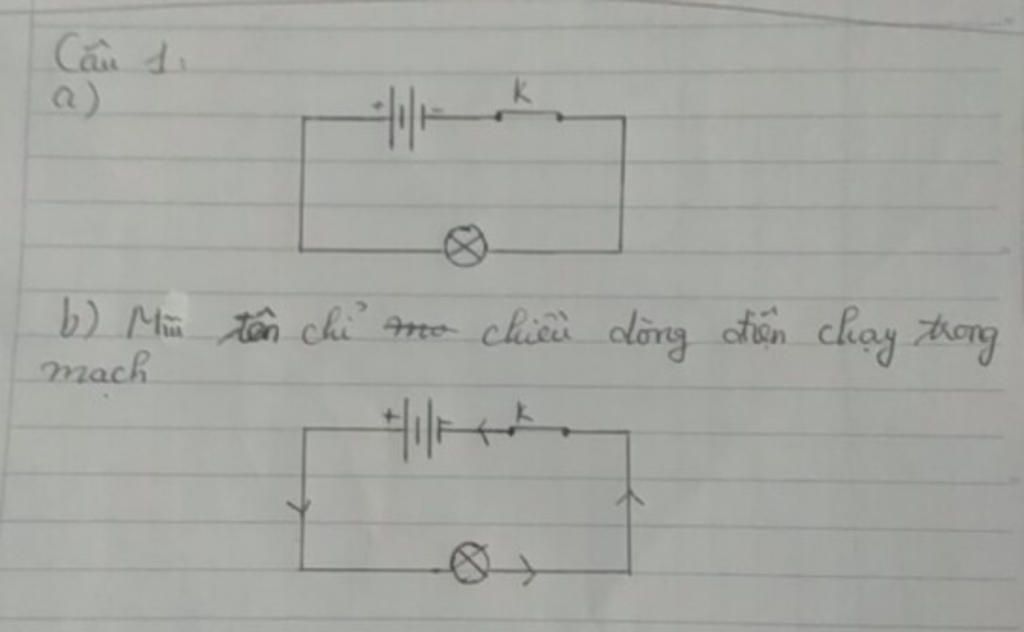 Câu 1.
a)
+ - K
b) Mũi tên chỉ mo chiều dòng điện chạy trong
mạch
+ - K